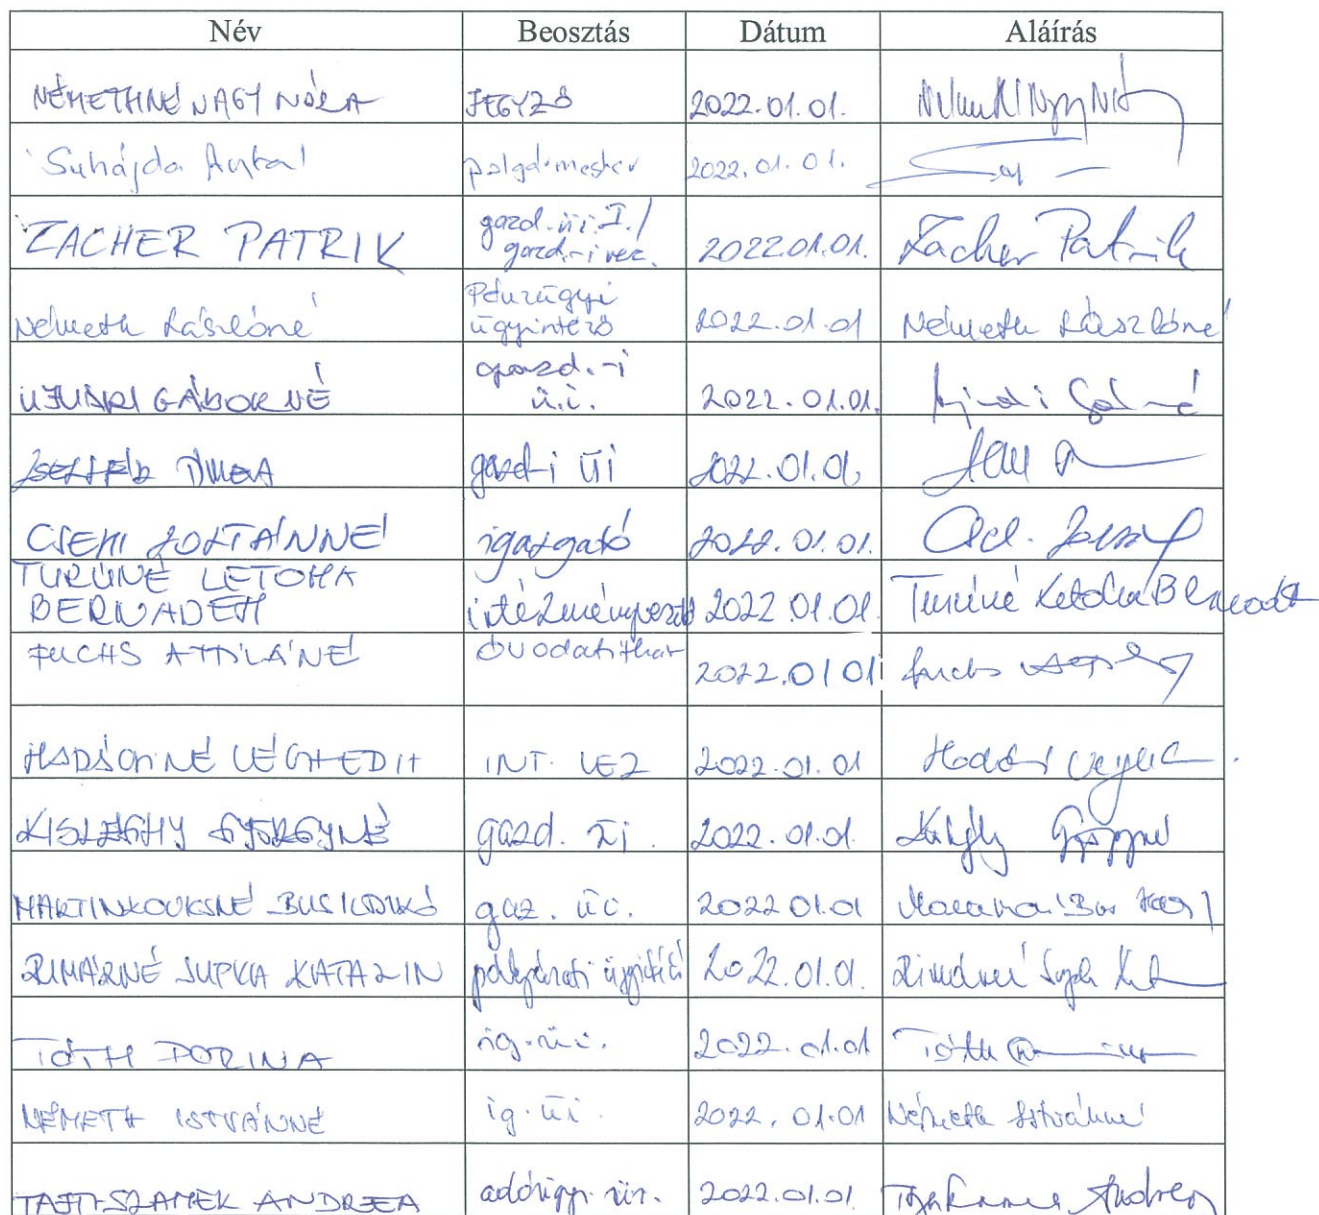 Név Beosztás Dátum Aláírás
NÉMETHNÉ NAGY NÓRA JEGYZŐ 2022.01.01.
Suhajda Antal polgármester 2022.01.01.
ZACHER PATRIK gazd. üi. I./ gazd.-i vez. 2022.01.01. Zacher Patrik
Németh Lászlóné Pénzügyi ügyintéző 2022.01.01 Németh Lászlóné
UJVÁRI GÁBORNÉ gazd.-i ü.i. 2022.01.01.
gazd-i üi 2022.01.01.
CSEHI ZOLTÁNNÉ igazgató 2022.01.01.
TURÚNÉ LETOHA BERNADETT intézményvezető 2022.01.01. Turúné Letoha Bernadett
FUCHS ATTILÁNÉ óvodatitkár 2022.01 01 Fuchs
HADÁCHINÉ VÉGH EDIT INT. VEZ 2022.01.01
KISLÉGHY GYÖRGYNÉ gazd. üi. 2022.01.01. Györgyné
MARTINKOVICSNÉ BUS ILDIKÓ gaz. üi. 2022 01.01
RIMÁRNÉ SUPKA KATALIN pályázati 2022.01.01. Rimárné
TÓTH DORINA ig. üi. 2022.01.01 Tóth
NÉMETH ISTVÁNNÉ ig. üi. 2022.01.01 Németh Istvánné
TAJTI-SZAMEK ANDREA adóügyi üi. 2022.01.01 Andrea